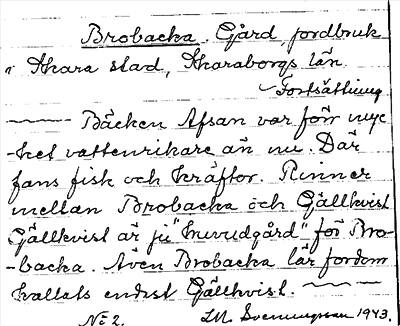 Brobacka. Gård, jordbruk
i Skara stad, Skaraborgs län
Fortsättning
Bäcken Afsan var förr myc-
-ket vattenrikare än nu. Där
fans fisk och kräftor. Rinner
mellan Brobacka och Gjällkvist
Gjällkvist är ju "huvudgård" för Bro-
-backa. Även Brobacka lär fordom
kallats endast Gjällkvist.
No 2. Svenungsson 1943.